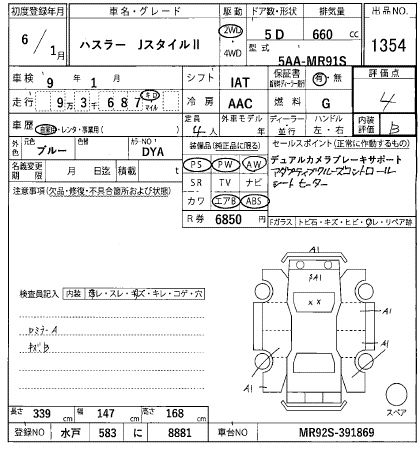 初度登録年月 車名・グレード 駆動 ドア数・形状 排気量 出品NO.
6 / 1月 ハスラー JスタイルⅡ 2WD 4WD 5D 660 cc 1354
型式 5AA-MR91S
車検 9年 1月 シフト IAT 保証書 有・無 評価点
走行 9万3千687 キロ マイル 冷房 AAC 燃料 G 4
車歴 自家用・レンタ・事業用( ) 定員 4人 外車モデル 年 ディーラー 並行 ハンドル 左・右 内装評価 B
外色 元色 ブルー 色替 カラーNO DYA 装備品(純正品に限る) セールスポイント(正常に動作するもの)
名義変更期限 月 日迄 積載 t PS PW AW デュアルカメラブレーキサポート
アダプティブクルーズコントロール
シートヒーター
注意事項(欠品・修復・不具合箇所および状態) SR TV ナビ
カワ エアB ABS
R券 6850 円 Fガラス トビ石・キズ・ヒビ・ワレ・リペア跡
検査員記入 内装 薄レ・スレ・キズ・キレ・コゲ・穴
ロミラーA
キズB
A1
A1
XX
A1
A1
A1
A1
スペア
長さ 339 cm 幅 147 cm 高さ 168 cm
登録NO 水戸 583 に 8881 車台NO MR92S-391869